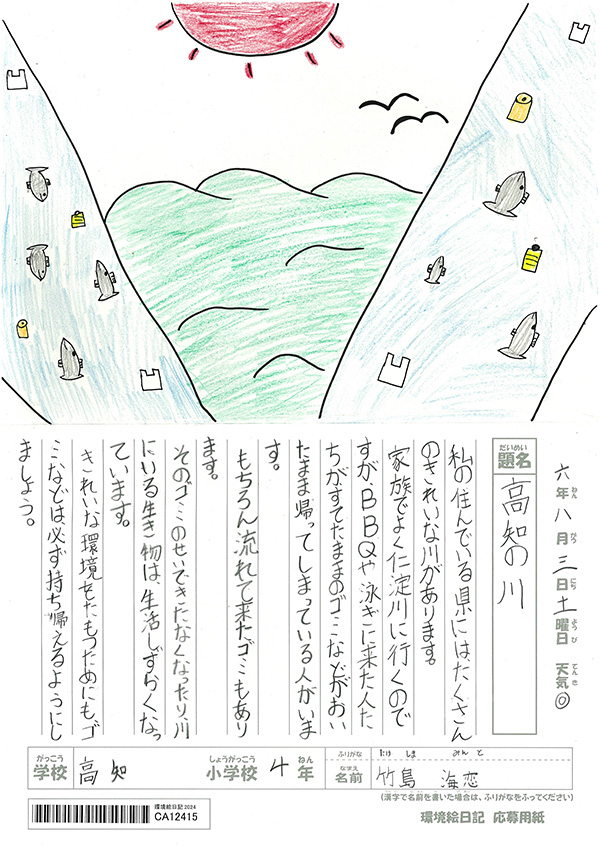 六年八月三日土曜日 天気◎
ねん がつ にち ようび てんき
だいめい
題名
高知の川
私の住んでいる県にはたくさん
のきれいな川があります。
家族でよく仁淀川に行くので
すが、BBQや泳ぎに来た人た
ちがすてたままのゴミなどがおい
たまま帰ってしまっている人がいま
す。
もちろん流れて来たゴミもあり
ます。
そのゴミのせいできたなくなったり、川
にいる生き物は、生活しずらくなっ
ています。
きれいな環境をたもつためにも、ゴ
ミなどは必ず持ち帰えるようにし
ましょう。
がっこう
学校
高知
しょうがっこう
小学校
4
ねん
年
ふりがな
たけ しま みんと
なまえ
名前
竹島 海恋
(漢字で名前を書いた場合は、ふりがなをふってください)
環境絵日記 2024
CA12415
環境絵日記 応募用紙